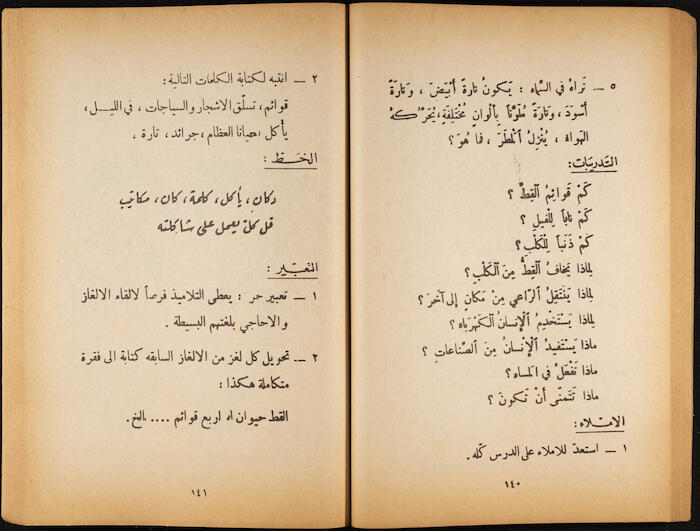 ٥ ــ نَراهُ في السَّماءِ : يَكونُ تارةً أَبْيَضَ ، وتارَةً
أَسْوَدَ ، وتارَةً مُلَوَّناً بِأَلْوانٍ مُخْتَلِفَةٍ ، يُحَرِّكُهُ
الهَواءُ ، يُنْزِلُ الْمَطَرَ ، فما هُوَ ؟
التَدريبات :
كَمْ قَوائِمُ القِطِّ ؟
كَمْ ناباً لِلْفيلِ ؟
كَمْ ذَنَباً لِلْكَلْبِ ؟
لِماذا يَخافُ القِطُّ مِنَ الْكَلْبِ ؟
لماذا يَنْتَقِلُ الرّاعي مِنْ مَكانٍ إلى آخَرَ ؟
لِماذا يَسْتَخْدِمُ الْإنْسانُ الْكَهْرَباءَ ؟
ماذا يَسْتَفيدُ الْإنْسانُ مِنَ الصّناعاتِ ؟
ماذا تَفْعَلُ في المساءِ ؟
ماذا تَتَمَنّى أنْ تَكونَ ؟
الامتلاء :
١ ــ استعدّ للاملاء على الدرس كلّه .
١٤٠
٢ ــ انتبه لكتابة الكلمات التالية :
قوائم ، تسلّق الاشجار والسياجات ، في الليل ،
يأكل احيانا العظام ، جرائد ، تارة ،
الخـط :
دكان ، يأكل ، كلمة ، كان ، مكاتيب
قل كلّ يعمل على شاكلته
التعبير :
١ ــ تعبير حر : يعطى التلاميذ فرصاً لالقاء الالغاز
والاحاجي بلغتهم البسيطة .
٢ ــ تحويل كل لغز من الالغاز السابقه كتابة الى فقرة
متكاملة هكذا :
القط حيوان له اربع قوائم .... الخ .
١٤١